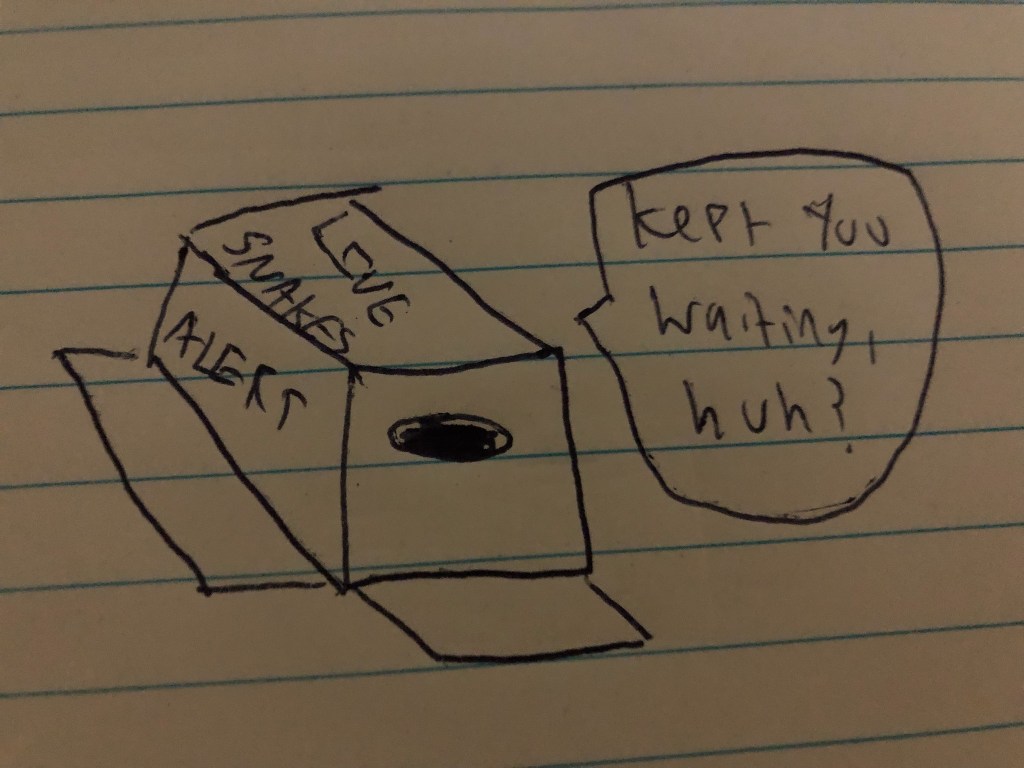 LIVE
SNAKES
ALERT
Kept You
Waiting,
huh?